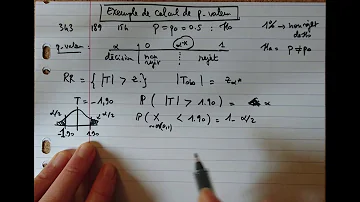 Exemple de calcul de p-valeur
343 189 154 P = P0 = 0.5 : H0 1% → non rejet de H0
p-valeur : α 0 α* 1 Ha = P ≠ P0
décision non rejet rejet
RR = { |T| > z } |Tobs| = zα*
T = -1,90 P( |T| > 1.90 ) = α
α/2 α/2 P( X < 1.90 ) = 1 - α/2
-1.90 1.90 ~N(0,1)